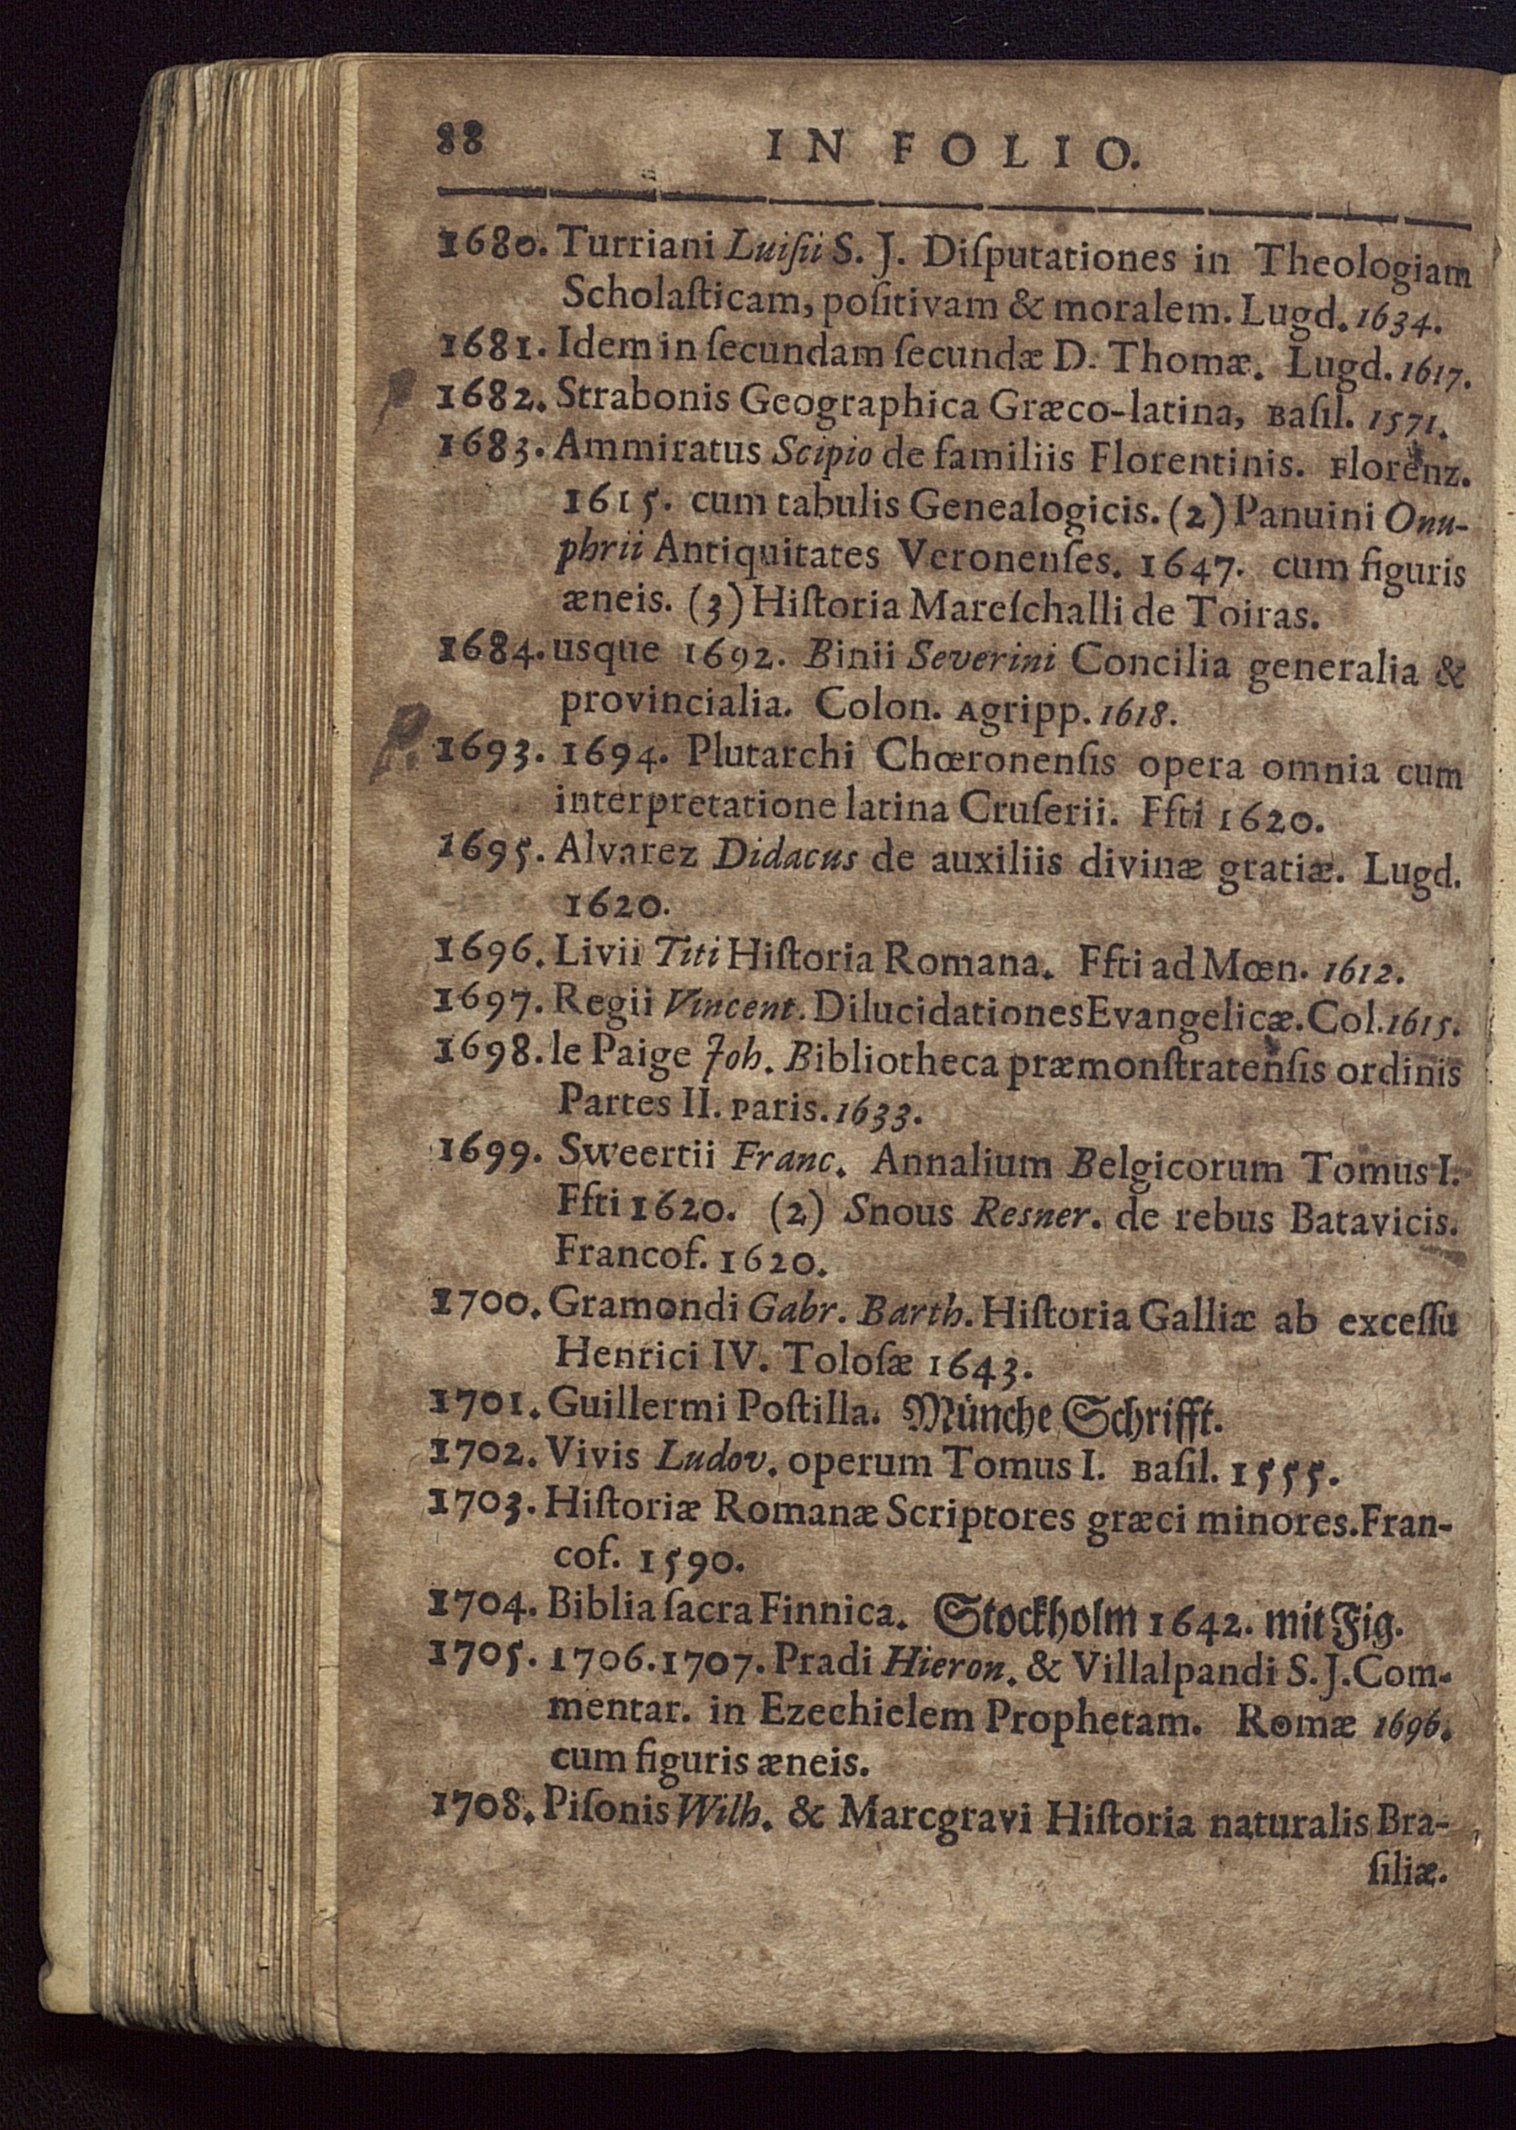 88 IN FOLIO.
1680. Turriani Luiſii S. J. Diſputationes in Theologiam
Scholaſticam, poſitivam & moralem. Lugd. 1634.
1681. Idem in ſecundam ſecundæ D. Thomæ. Lugd. 1617.
1682. Strabonis Geographica Græco-latina, Baſil. 1571.
1683. Ammiratus Scipio de familiis Florentinis. Florenz.
1615. cum tabulis Genealogicis. (2) Panuini Onu-
phrii Antiquitates Veronenſes. 1647. cum figuris
æneis. (3) Hiſtoria Mareſchalli de Toiras.
1684. usque 1692. Binii Severini Concilia generalia &
provincialia. Colon. Agripp. 1618.
1693. 1694. Plutarchi Chœronenſis opera omnia cum
interpretatione latina Cruſerii. Ffti 1620.
1695. Alvarez Didacus de auxiliis divinæ gratiæ. Lugd.
1620.
1696. Livii Titi Hiſtoria Romana. Ffti ad Mœn. 1612.
1697. Regii Vincent. Dilucidationes Evangelicæ. Col. 1615.
1698. le Paige Joh. Bibliotheca præmonſtratenſis ordinis
Partes II. Paris. 1633.
1699. Sweertii Franc. Annalium Belgicorum Tomus I.
Ffti 1620. (2) Snous Resner. de rebus Batavicis.
Francof. 1620.
1700. Gramondi Gabr. Barth. Hiſtoria Galliæ ab exceſſu
Henrici IV. Toloſæ 1643.
1701. Guillermi Poſtilla. Münche Schrifft.
1702. Vivis Ludov. operum Tomus I. Baſil. 1555.
1703. Hiſtoriæ Romanæ Scriptores græci minores. Fran-
cof. 1590.
1704. Biblia ſacra Finnica. Stockholm 1642. mit Fig.
1705. 1706. 1707. Pradi Hieron. & Villalpandi S. J. Com-
mentar. in Ezechielem Prophetam. Romæ 1696.
cum figuris æneis.
1708. Piſonis Wilh. & Marcgravi Hiſtoria naturalis Bra-
ſiliæ.